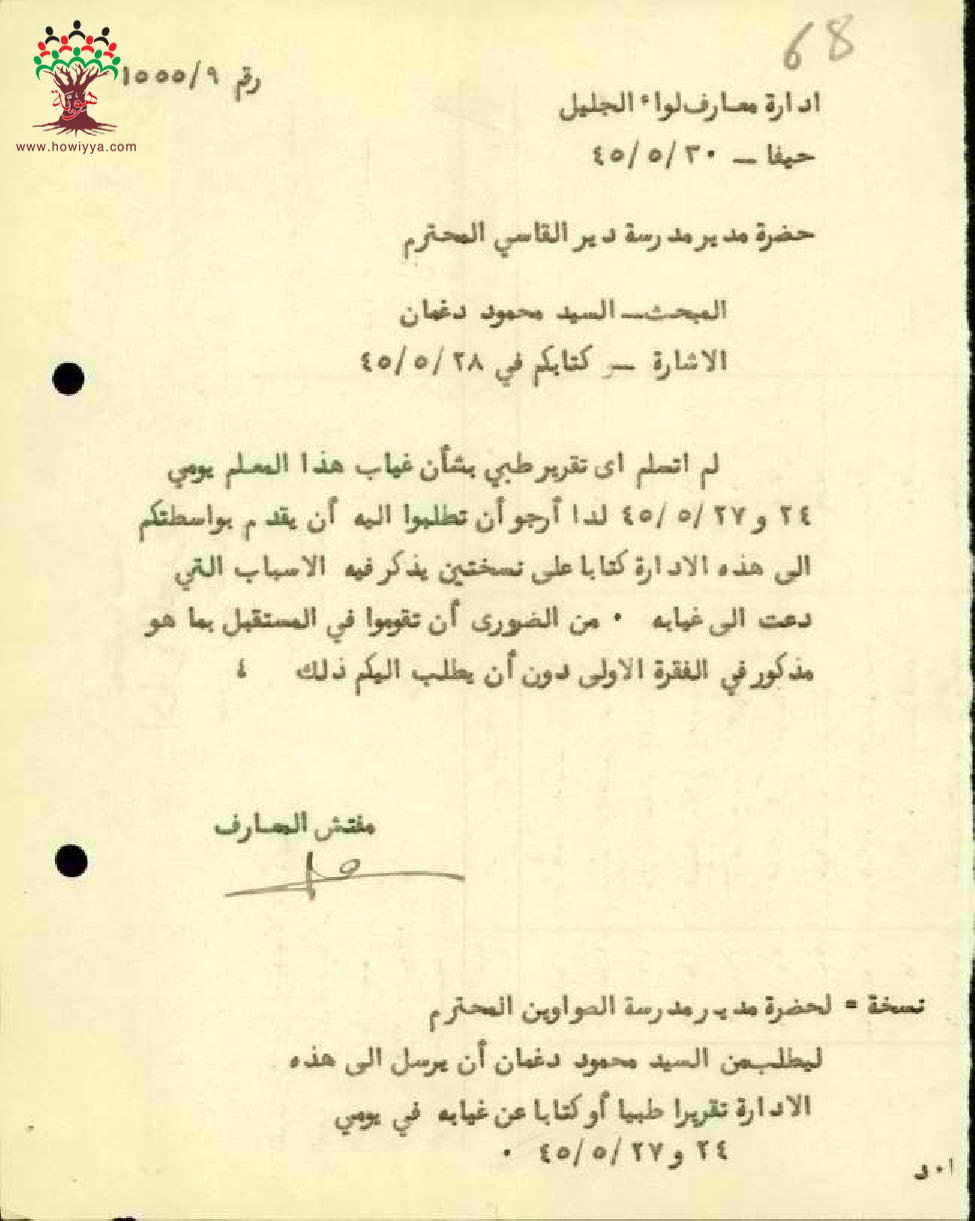 68
هوية
www.howiyya.com
رقم ١٥٥٥/٩
ادارة معارف لواء الجليل
حيفا – ٤٥/٥/٣٠
حضرة مدير مدرسة دير القاسي المحترم
المبحث – السيد محمود دغمان
الاشارة – كتابكم في ٤٥/٥/٢٨
لم اتسلم اى تقرير طبي بشأن غياب هذا المعلم يومي
٢٤ و ٤٥/٥/٢٧ لذا أرجو أن تطلبوا اليه أن يقدم بواسطتكم
الى هذه الادارة كتابا على نسختين يذكر فيه الاسباب التي
دعت الى غيابه ٠ من الضرورى أن تقوموا في المستقبل بما هو
مذكور في الفقرة الاولى دون أن يطلب اليكم ذلك ،
مفتش المعارف
نسخة = لحضرة مدير مدرسة الصواوين المحترم
ليطلب من السيد محمود دغمان أن يرسل الى هذه
الادارة تقريرا طبيا أو كتابا عن غيابه في يومي
٢٤ و ٤٥/٥/٢٧ ٠
ا٠د